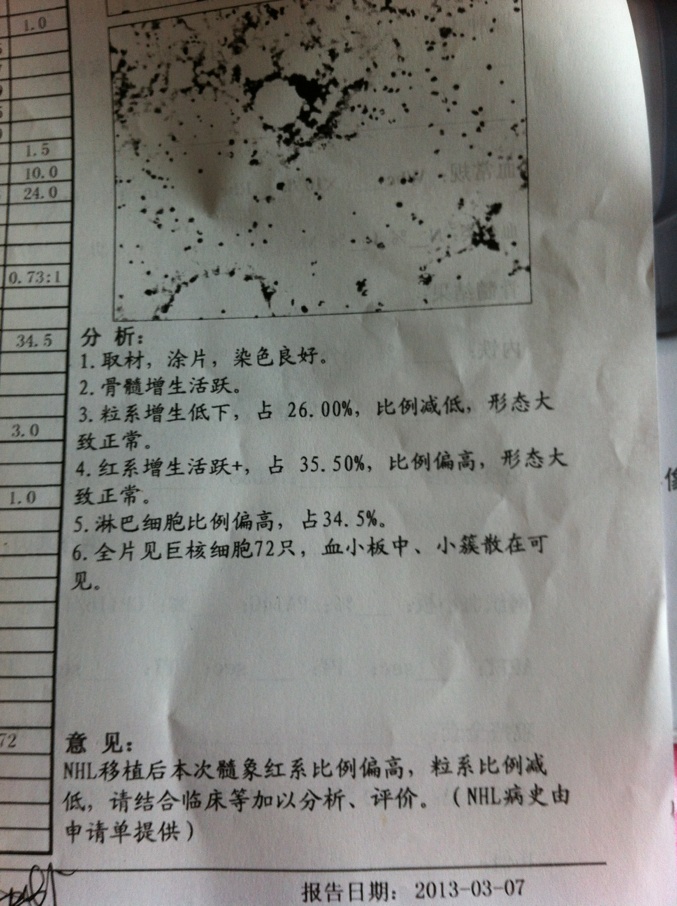 1.0
1.5
10.0
24.0
0.73:1
34.5
3.0
1.0
72
分 析：
1. 取材，涂片，染色良好。
2. 骨髓增生活跃。
3. 粒系增生低下，占 26.00%，比例减低，形态大
致正常。
4. 红系增生活跃+，占 35.50%，比例偏高，形态大
致正常。
5. 淋巴细胞比例偏高，占34.5%。
6. 全片见巨核细胞72只，血小板中、小簇散在可
见。
意 见：
NHL移植后本次髓象红系比例偏高，粒系比例减
低，请结合临床等加以分析、评价。（NHL病史由
申请单提供）
报告日期： 2013-03-07